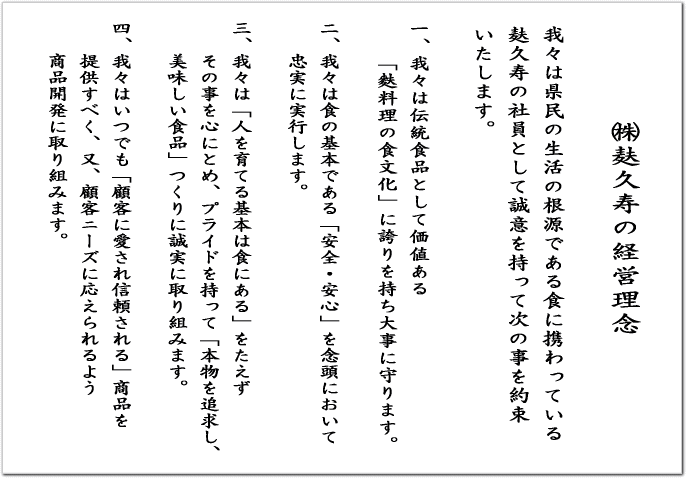 ㈱麸久寿の経営理念
我々は県民の生活の根源である食に携わっている
麸久寿の社員として誠意を持って次の事を約束
いたします。
一、我々は伝統食品として価値ある
「麩料理の食文化」に誇りを持ち大事に守ります。
二、我々は食の基本である「安全・安心」を念頭において
忠実に実行します。
三、我々は「人を育てる基本は食にある」をたえず
その事を心にとめ、プライドを持って「本物を追求し、
美味しい食品」つくりに誠実に取り組みます。
四、我々はいつでも「顧客に愛され信頼される」商品を
提供すべく、又、顧客ニーズに応えられるよう
商品開発に取り組みます。